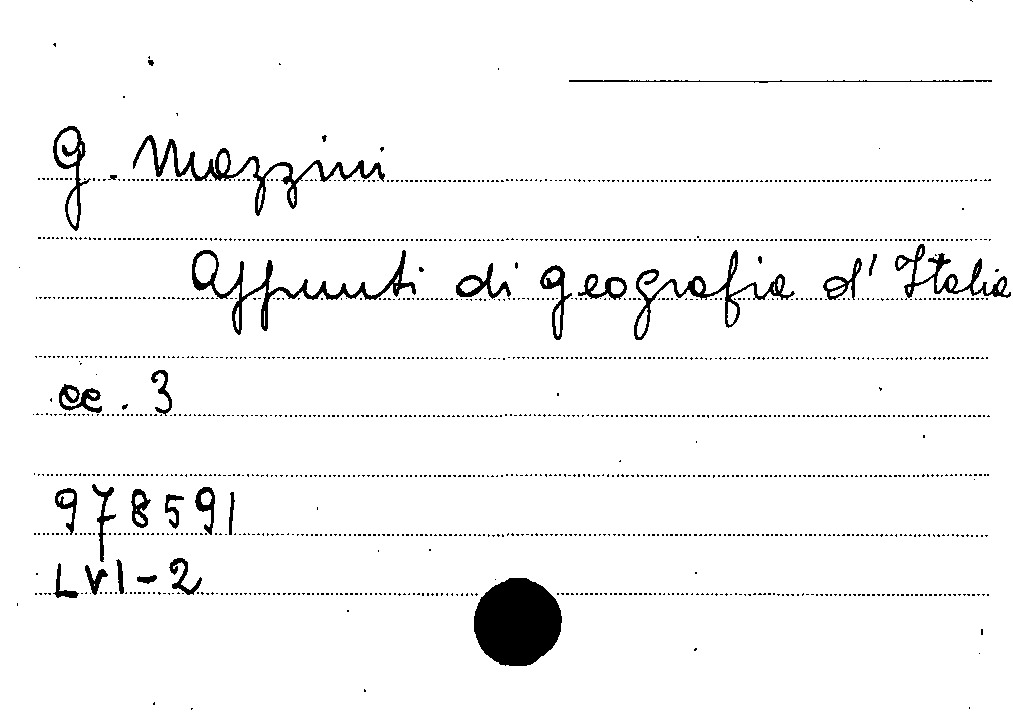 G. Mazzini
Appunti di geografia d'Italia
cc. 3
978591
LVI-2